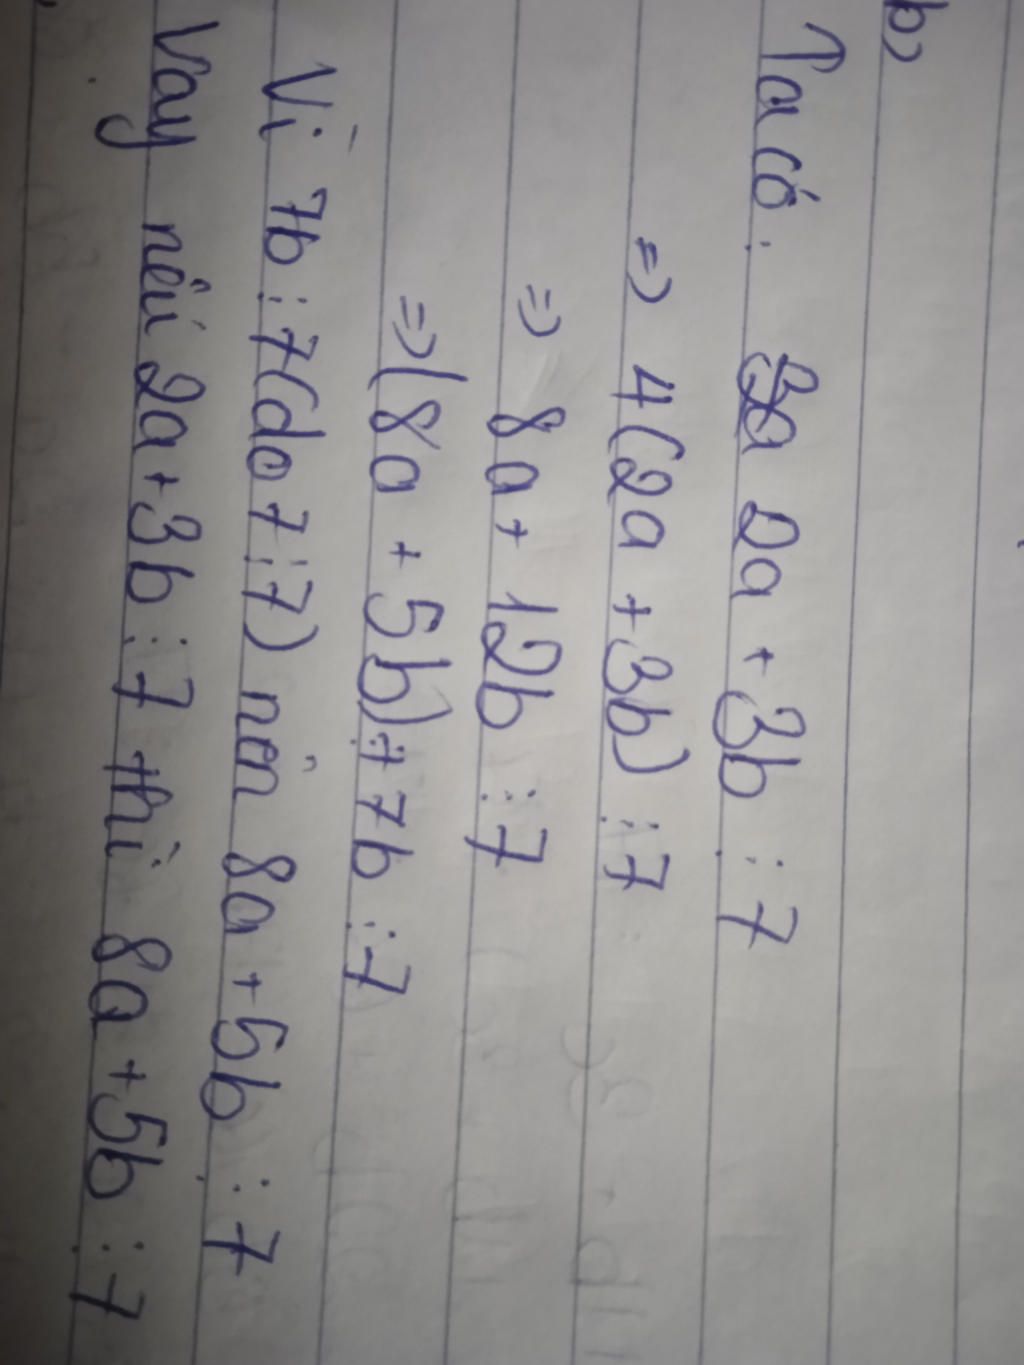 b)
Ta có: 2a + 3b ⋮ 7
=> 4(2a + 3b) ⋮ 7
=> 8a + 12b ⋮ 7
=> (8a + 5b) + 7b ⋮ 7
Vì 7b ⋮ 7 (do 7 ⋮ 7) nên 8a + 5b ⋮ 7
Vay nếu 2a + 3b ⋮ 7 thì 8a + 5b ⋮ 7